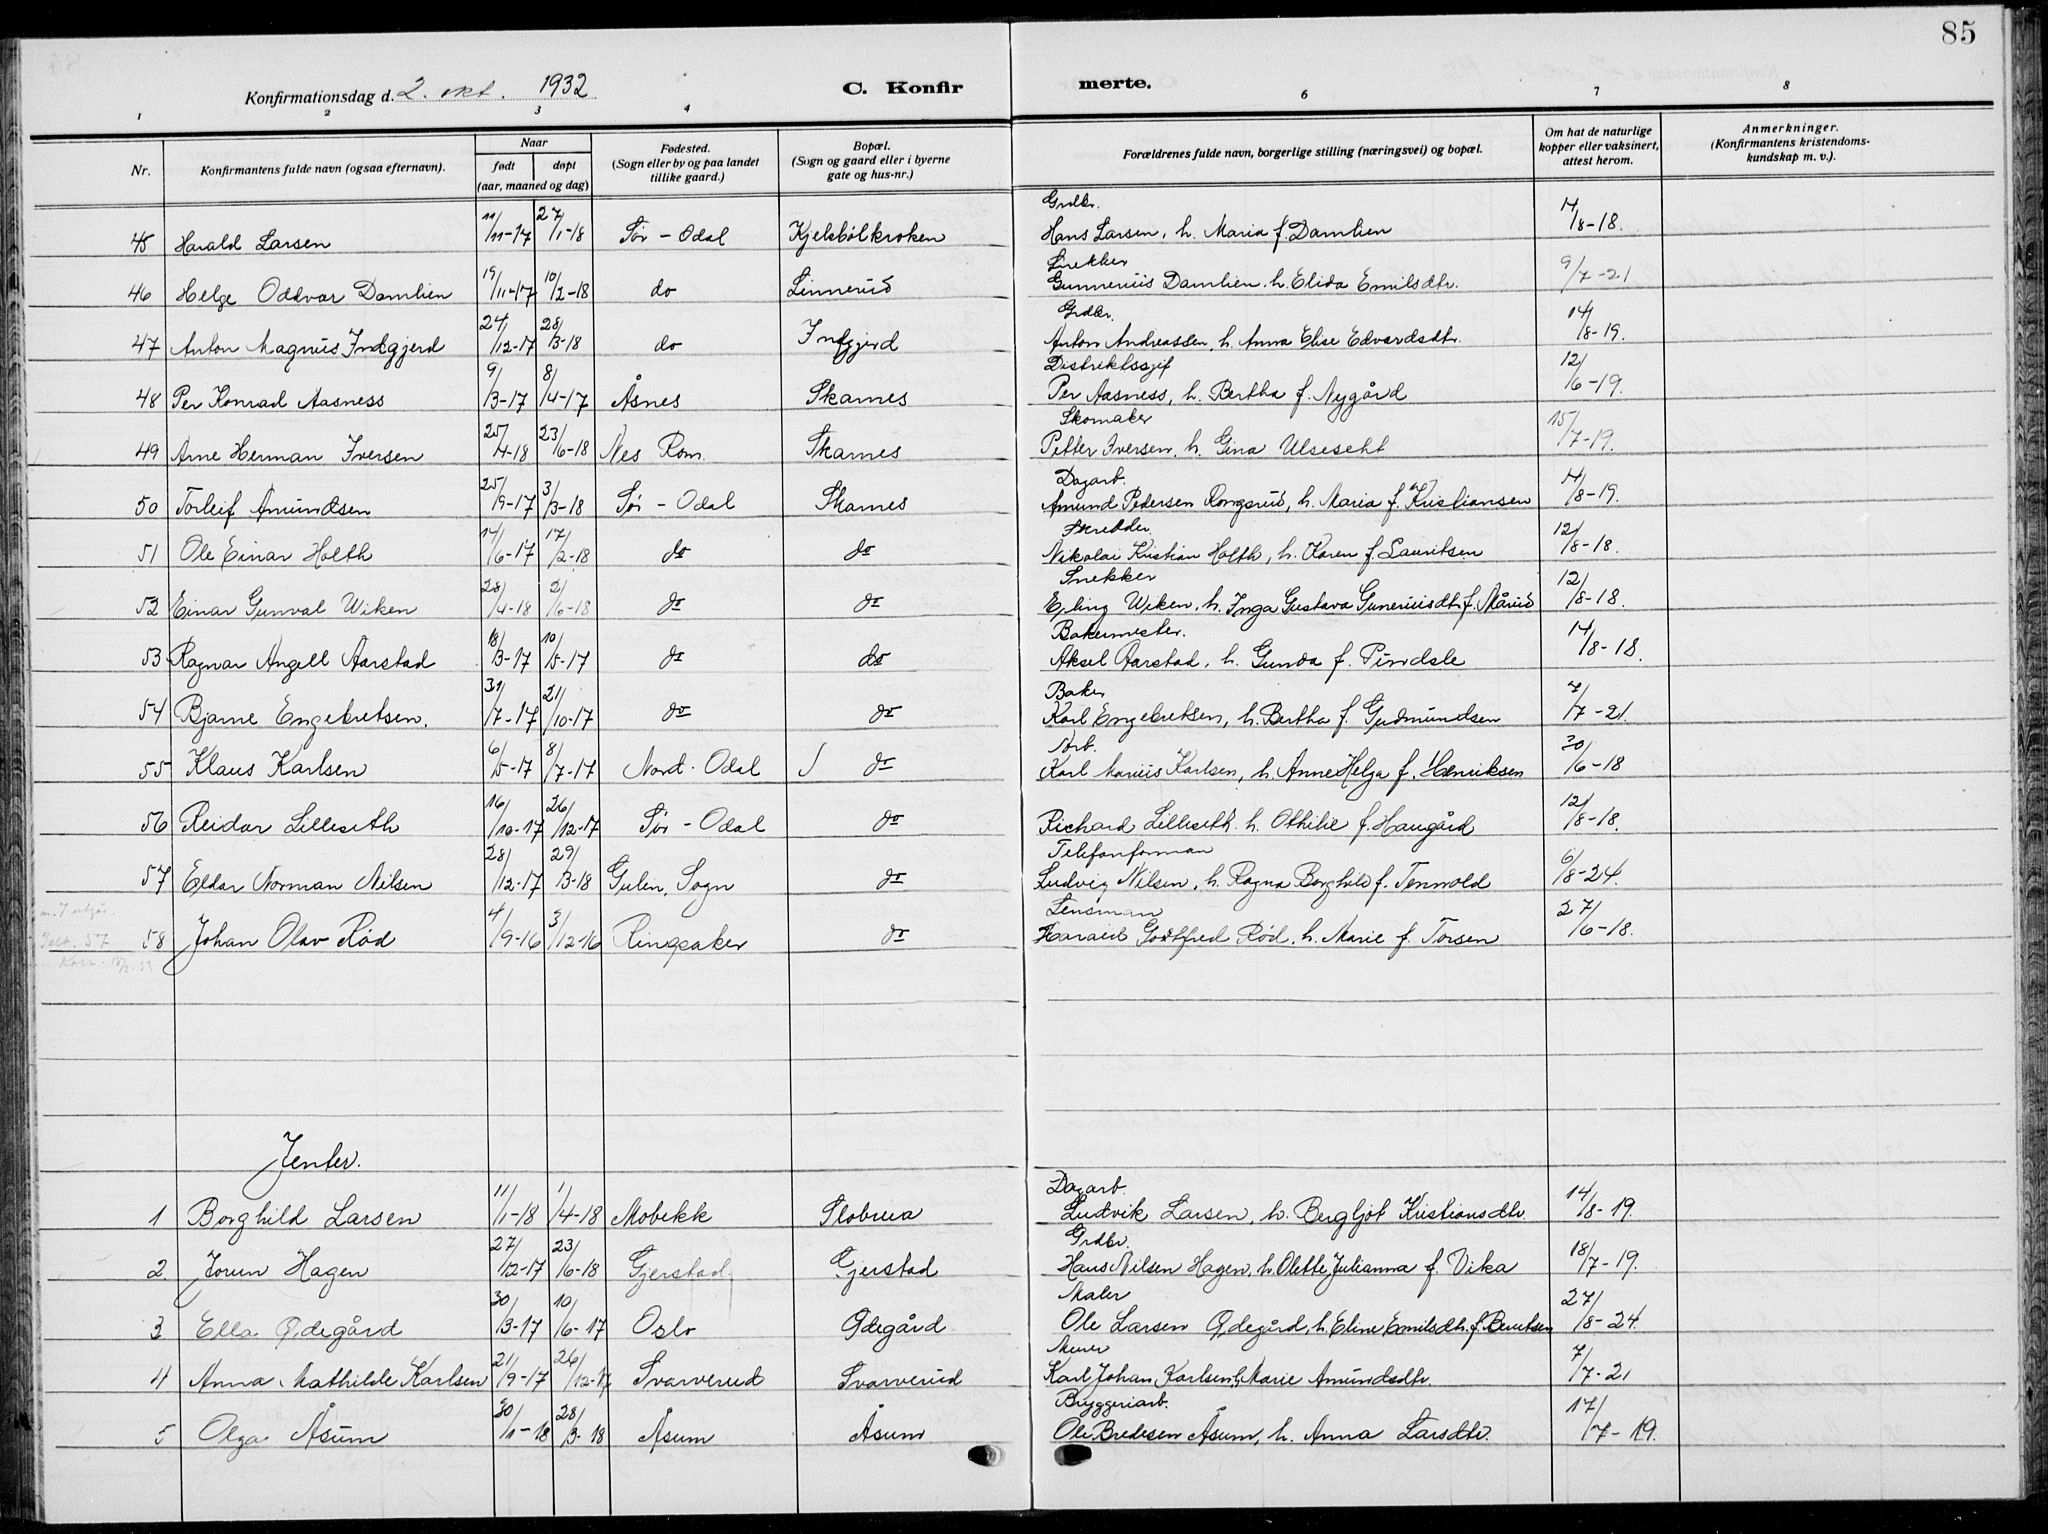 85
Konfirmationsdag d. 2. okt. 1932
C. Konfirmerte.
1 2 3 4 6 7 8
Nr.
Konfirmantens fulde navn (ogsaa efternavn).
Naar
født døpt
(aar, maaned og dag)
Fødested.
(Sogn eller by og paa landet
tillike gaard.)
Bopæl.
(Sogn og gaard eller i byerne
gate og hus-nr.)
Forældrenes fulde navn, borgerlige stilling (næringsvei) og bopæl.
Om hat de naturlige
kopper eller vaksinert,
attest herom.
Anmerkninger.
(Konfirmantens kristendoms-
kundskap m. v.).
Grdbr.
45 Harald Larsen 11/11-17 27/1-18 Sør-Odal Kjelsbølkroken Hans Larsen, h. Maria f. Damlien 14/8-18.
Snekker
46 Helge Oddvar Damlien 19/11-17 10/2-18 do Linnerud Gunnerius Damlien. h. Elida Emilsdtr. 9/7-21
Grdbr.
47 Anton Magnus Indgjerd 24/12-17 28/3-18 do Indgjerd Anton Andreassen, h. Anna Elise Edvardsdtr. 14/8-19.
Distriktssjef
48 Per Konrad Aasness 9/3-17 8/4-17 Åsnes Skarnes Per Aasness, h. Bertha f. Nygård 12/6-19.
Skomaker
49 Arne Herman Iversen 25/4-18 23/6-18 Nes Rom. Skarnes Petter Iversen, h. Gina Ulseseht 15/7-19.
Dagarb.
50 Torleif Amundsen 25/9-17 3/3-18 Sør-Odal Skarnes Amund Pedersen Rongsrud, h. Maria f. Kristiansen 14/8-19.
Skredder
51 Ole Einar Holth 14/6-17 17/2-18 do do Nikolai Kristian Holth, h. Karen f. Lauritsen 12/8-18.
Snekker
52 Einar Gunval Wiken 28/4-18 2/6-18 do do Erling Wiken, h. Inga Gustava Guneriusdtr. f. Mårud 12/8-18.
Bakermester.
53 Ragnar Angell Aarstad 18/3-17 10/5-17 do do Aksel Aarstad, h. Gunda f. Pindsle 14/8-18.
Baker
54 Bjarne Engebretsen. 31/7-17 21/10-17 do do Karl Engebretsen, h. Bertha f. Gudmundsen 7/7-21.
55 Klaus Karlsen 6/5-17 8/7-17 Nord-Odal do Karl Marius Karlsen, h. Anne Helga f. Henriksen 30/6-18
56 Reidar Lilleseth 16/10-17 26/12-17 Sør-Odal do Richard Lilleseth. h. Othilie f. Haugård 12/8-18.
Telefonforman
57 Eldar Norman Nilsen 28/12-17 29/3-18 Gulen, Sogn do Ludvig Nilsen, h. Ragna Borghild f. Tennvold 6/8-24.
Lensman
58 Johan Olav Rød 4/9-16 3/12-16 Ringsaker do Harald Godtfred Rød. h. Marie f. Torsen 27/6-18.
57
Jenter.
Dagarb.
1 Borghild Larsen 11/1-18 1/4-18 Mobekk Slobrua Ludvik Larsen, h. Bergljot Kristiansdtr. 14/8-19.
Grdbr.
2 Jorun Hagen 27/12-17 23/6-18 Gjerstad. Gjerstad Hans Nilsen Hagen, h. Olette Julianna f. Vika 18/7-19.
Maler
3 Ella Ødegård 30/3-17 10/6-17 Oslo Ødegård Ole Larsen Ødegård, h. Eline Emilsdtr. f. Berntsen 27/8-24.
Murer
4 Anna Mathilde Karlsen 21/9-17 26/12-17 Svarverud Svarverud Karl Johan Karlsen, h. Marie Amundsdtr. 7/7-21
Bryggeriarb.
5 Olga Åsum 30/1-18 28/3-18 Åsum Åsum Ole Bredesen Åsum, h. Anna Larsdtr. 17/7-19.